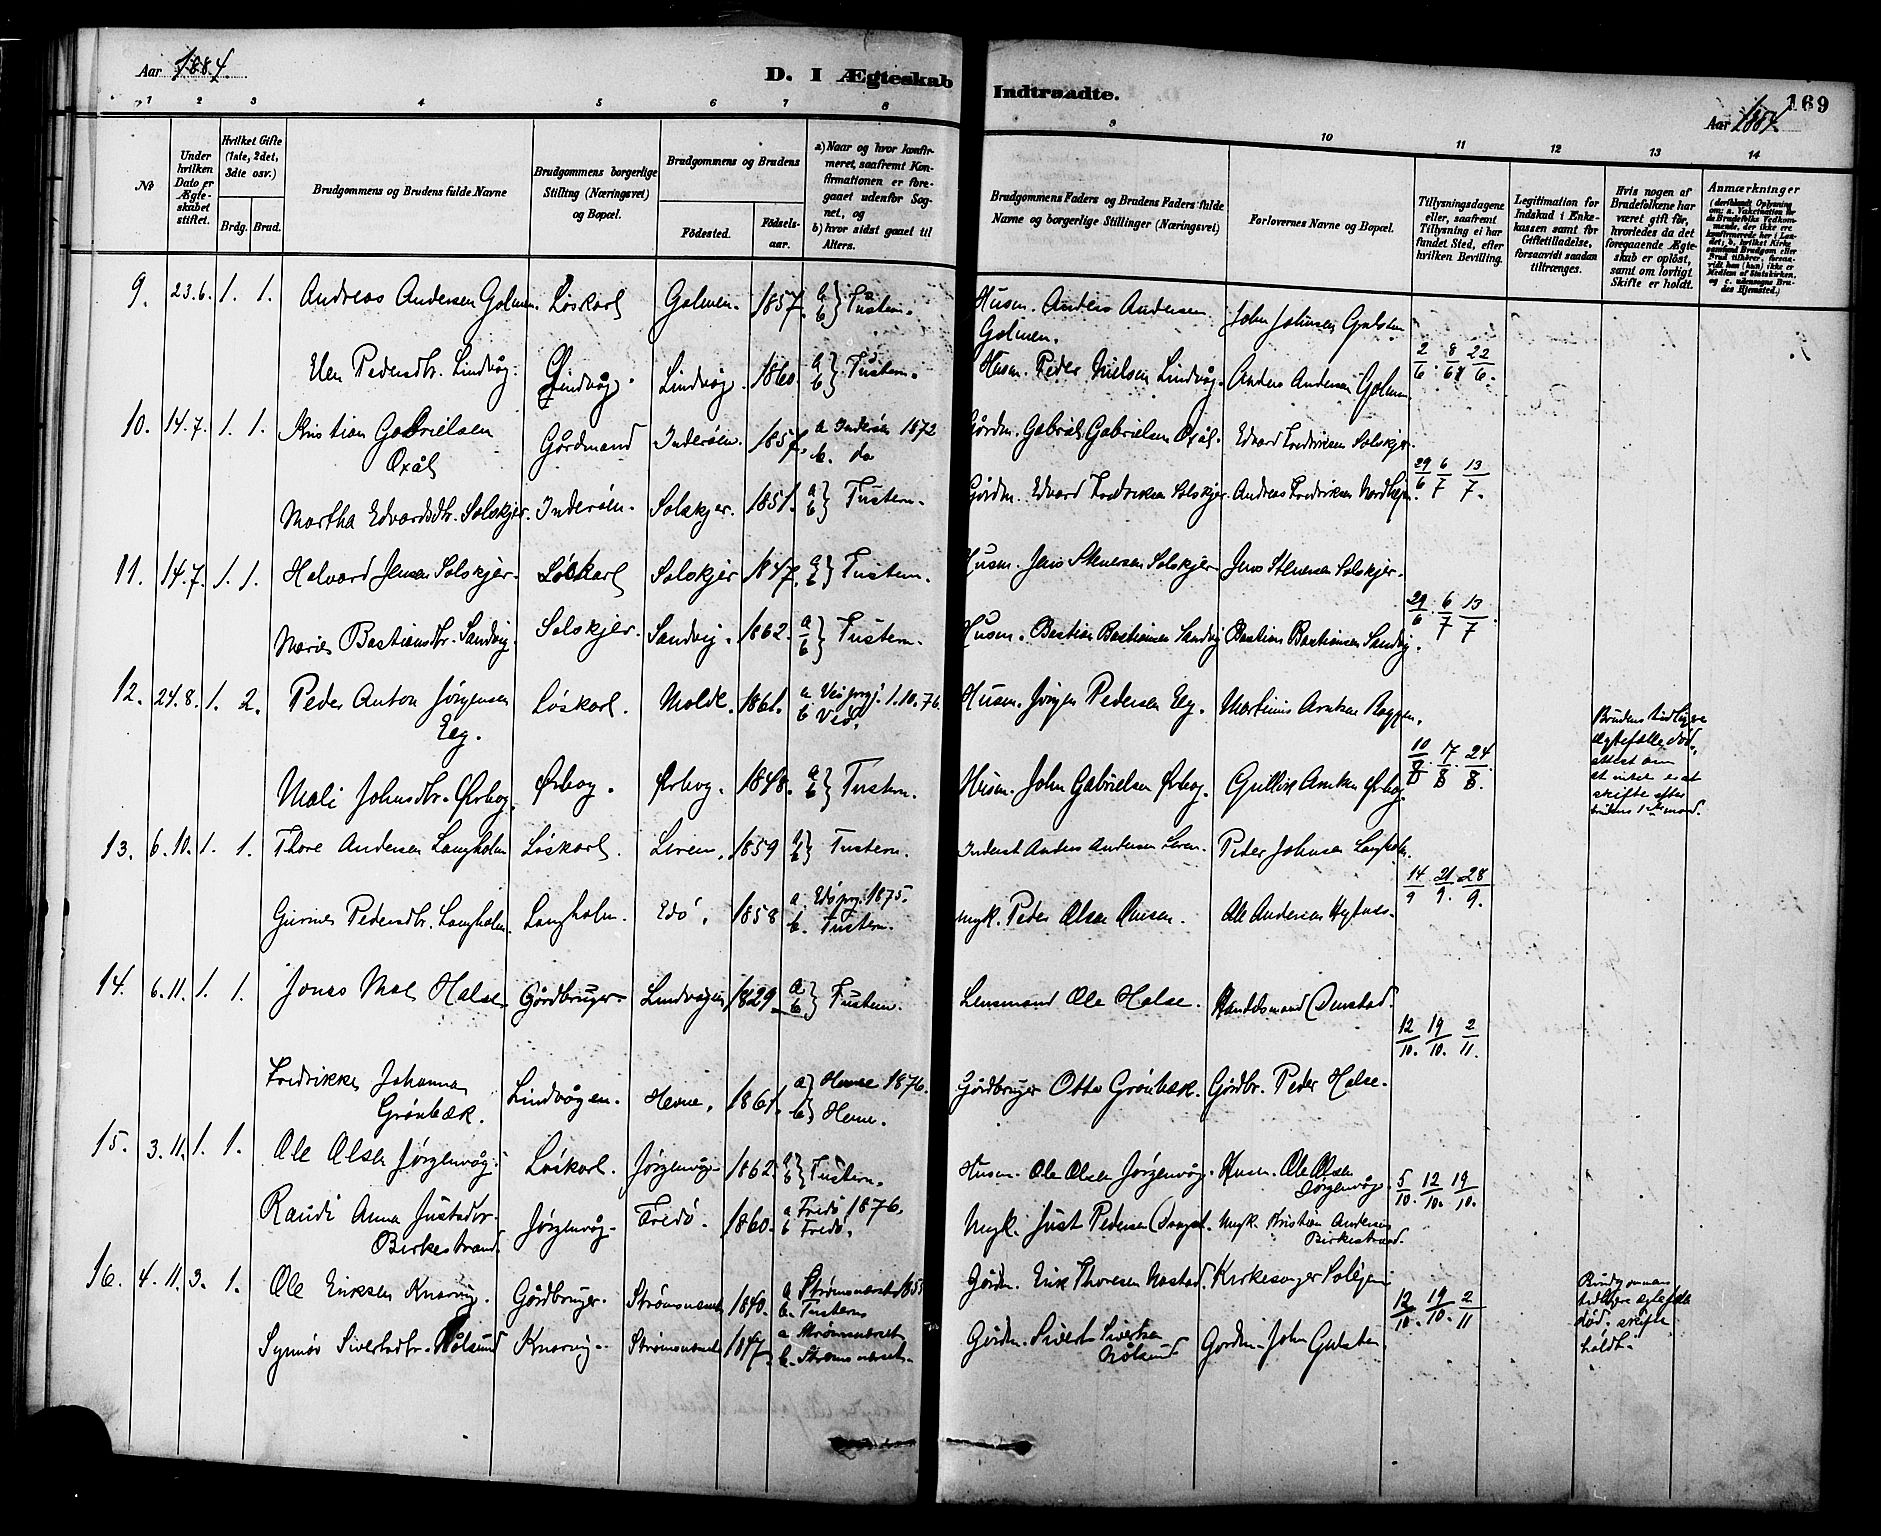 Aar 1884.
D. I Ægteskab Indtraadte.
169
Aar 1884.
1 2 3 4 5 6 7 8 9 10 11 12 13 14
No
Under hvilken Dato er Ægteskabet stiftet.
Hvilket Gifte (1ste, 2det, 3die osv.)
Brdg. Brud.
Brudgommens og Brudens fulde Navne
Brudgommens borgerlige Stilling (Næringsvei) og Bopæl.
Brudgommens og Brudens
Födested. Födsels-aar.
a) Naar og hvor konfirmeret, saafremt Konfirmationen er foregaaet udenfor Sognet, og
b) hvor sidst gaaet til Alters.
Brudgommens Faders og Brudens Faders fulde Navne og borgerlige Stillinger (Næringsvei)
Forlovernes Navne og Bopæl.
Tillysningsdagene eller, saafremt Tillysning ei har fundet Sted, efter hvilken Bevilling.
Legitimation for Indskud i Enkekassen samt for Giftetilladelse, forsaavidt saadan tiltrænges.
Hvis nogen af Brudefolkene har været gift för, hvorledes da det foregaaende Ægteskab er oplöst, samt om lovligt Skifte er holdt.
Anmærkninger
9. 23.6. 1. 1. Andreas Andersen Golmen. Löskarl Golmen. 1857. a b } Tustern. Husm. Anders Andersen Golmen. John Johnsen Gulsten
Elen Pedersdtr. Lindvåg. Lindvåg. Lindvåg. 1860. a b } Tustern. Husm. Peder Nielsen Lindvåg. Anders Andersen Golmen 2/6. 8/6. 22/6.
10. 14.7. 1. 1. Kristian Gabrielsen Oxål Gårdmand Inderöen. 1857. a Inderöen 1872 b. do Gårdm. Gabriel Gabrielsen Oxål. Edvard Fredriksen Solskjer.
Martha Edvardsdtr. Solskjer. Inderöen. Solskjer. 1851. a b } Tustern. Gårdm. Edvard Fredriksen Solskjer. Andreas Fredriksen 29/6 6/7 13/7.
11. 14.7. 1. 1. Halvard Jensen Solskjer. Löskarl Solskjer 1847. a b } Tustern. Husm. Jens Stenersen Solskjer Jens Stenersen Solskjer.
Maria Bastiansdtr. Sandvig. Solskjer. Sandvig. 1862. a b } Tustern. Husm. Bastian Bastiansen Sandvig Bastian Bastiansen Sandvig. 29/6. 6/7 13/7.
12. 24.8. 1. 2. Peder Anton Jörgensen Eeg. Löskarl. Molde. 1861. a Veö prgj. 1.10.76. b Veö. Husm. Jörgen Pedersen Eeg. Martinus Arntsen
Mali Johnsdtr. Ørbog. Ørbog. Ørbog. 1848. a b } Tustern. Husm. John Gabrielsen Ørbog. Arntsen Ørbog. 10/8. 17/8 24/8. Brudens tidligere ægtefælle död. attest om at intet er at skifte efter brudens 1ste mand.
13. 6.10. 1. 1. Thore Andersen Langholm Löskarl. Leren. 1859 a b } Tustern. Inderst Anders Andersen Leren. Peder Johnsen Langholm.
Gurine Pedersdtr. Langholm. Langholm. Edö. 1858 a. Edö prgj. 1875. b. Tustern. Ungk. Peder Olsen Ole Andersen 14/9 21/9. 28/9.
14. 6.11. 1. 1. Jonas Moe Halse Gårdbruger Lindvågen 1829 a b } Tustern. Lensmand Ole Halse. Handelsmand
Fredrikke Johanna Grönbæk. Lindvågen. Hevne. 1861. a Hevne 1876. b Hevne. Gårdbruger Otto Grönbæk. Gårdbr. Peder Halse. 12/10. 19/10. 2/11.
15. 3.11. 1. 1. Ole Olsen Jörgenvåg. Löskarl. Jörgenvåg 1862. a b } Tustern. Husm. Ole Olsen Jörgenvåg. Husm. Ole Olsen Jörgenvåg.
Randi Anna Justsdtr. Birkestrand. Jörgenvåg. Fredö. 1860. a Fredö 1876. b Fredö. Ungk. Just Pedersen Ungk. Kristian Anders Birkestrand. 5/10. 12/10. 19/10.
16. 4.11. 3. 1. Ole Eriksen Knarvig. Gårdbruger. Strömsnæset 1840. a. Strömsnæset b. Tustern Gårdm. Erik Thoresen Kirkesanger
Synnöv Sivertsdtr. Nålsund Knarvig. Strömsnæset 1847. a Strömsnæset b. Strömsnæset. Gårdm. Sivert Sivertsen Nålsund Gårdm. John Gulsten. 12/10. 19/10. 2/11 Brudgommens tidligere ægtefælle död. skifte holdt.